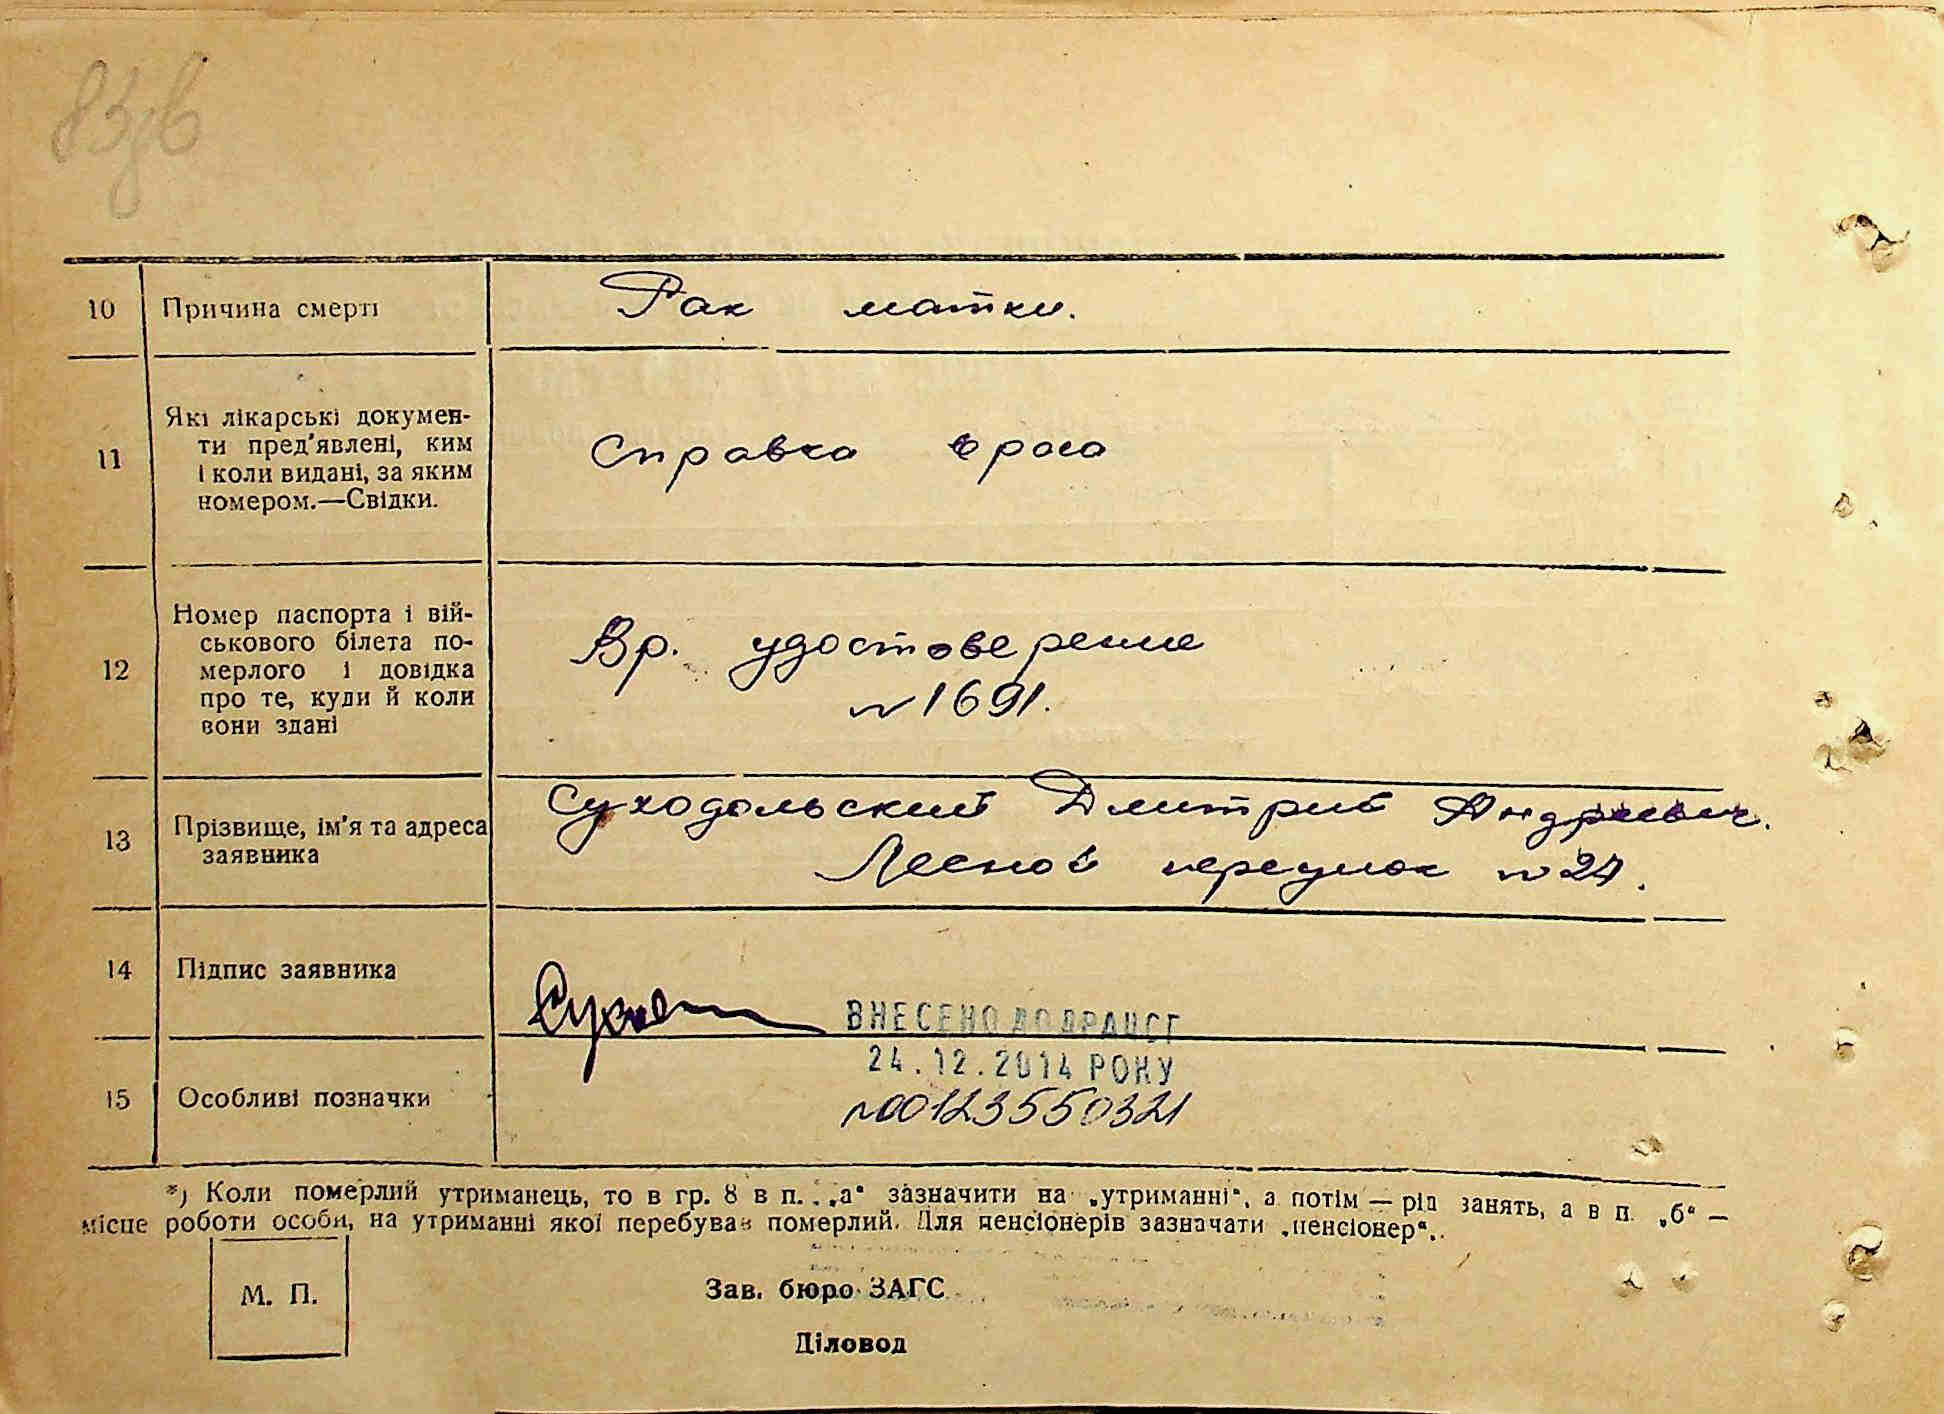 83зв
10 Причина смерті Рак матки.
11 Які лікарські докумен-
ти пред'явлені, ким
і коли видані, за яким
номером.—Свідки.
Справка врача
12 Номер паспорта і вій-
ськового білета по-
мерлого і довідка
про те, куди й коли
вони здані
Вр. удостоверение
№1691.
13 Прізвище, ім'я та адреса
заявника
Суходольский Дмитрий Андреевич.
Лесной переулок №24.
14 Підпис заявника
ВНЕСЕНО ДО ДРАЦСГ
24.12.2014 РОКУ
15 Особливі позначки №00123550321
*) Коли померлий утриманець, то в гр. 8 в п. „а“ зазначити на „утриманні“, а потім — рід занять, а в п. „б“ —
місце роботи особи, на утриманні якої перебував померлий. Для пенсіонерів зазначати „пенсіонер“.
М. П.
Зав. бюро ЗАГС
Діловод